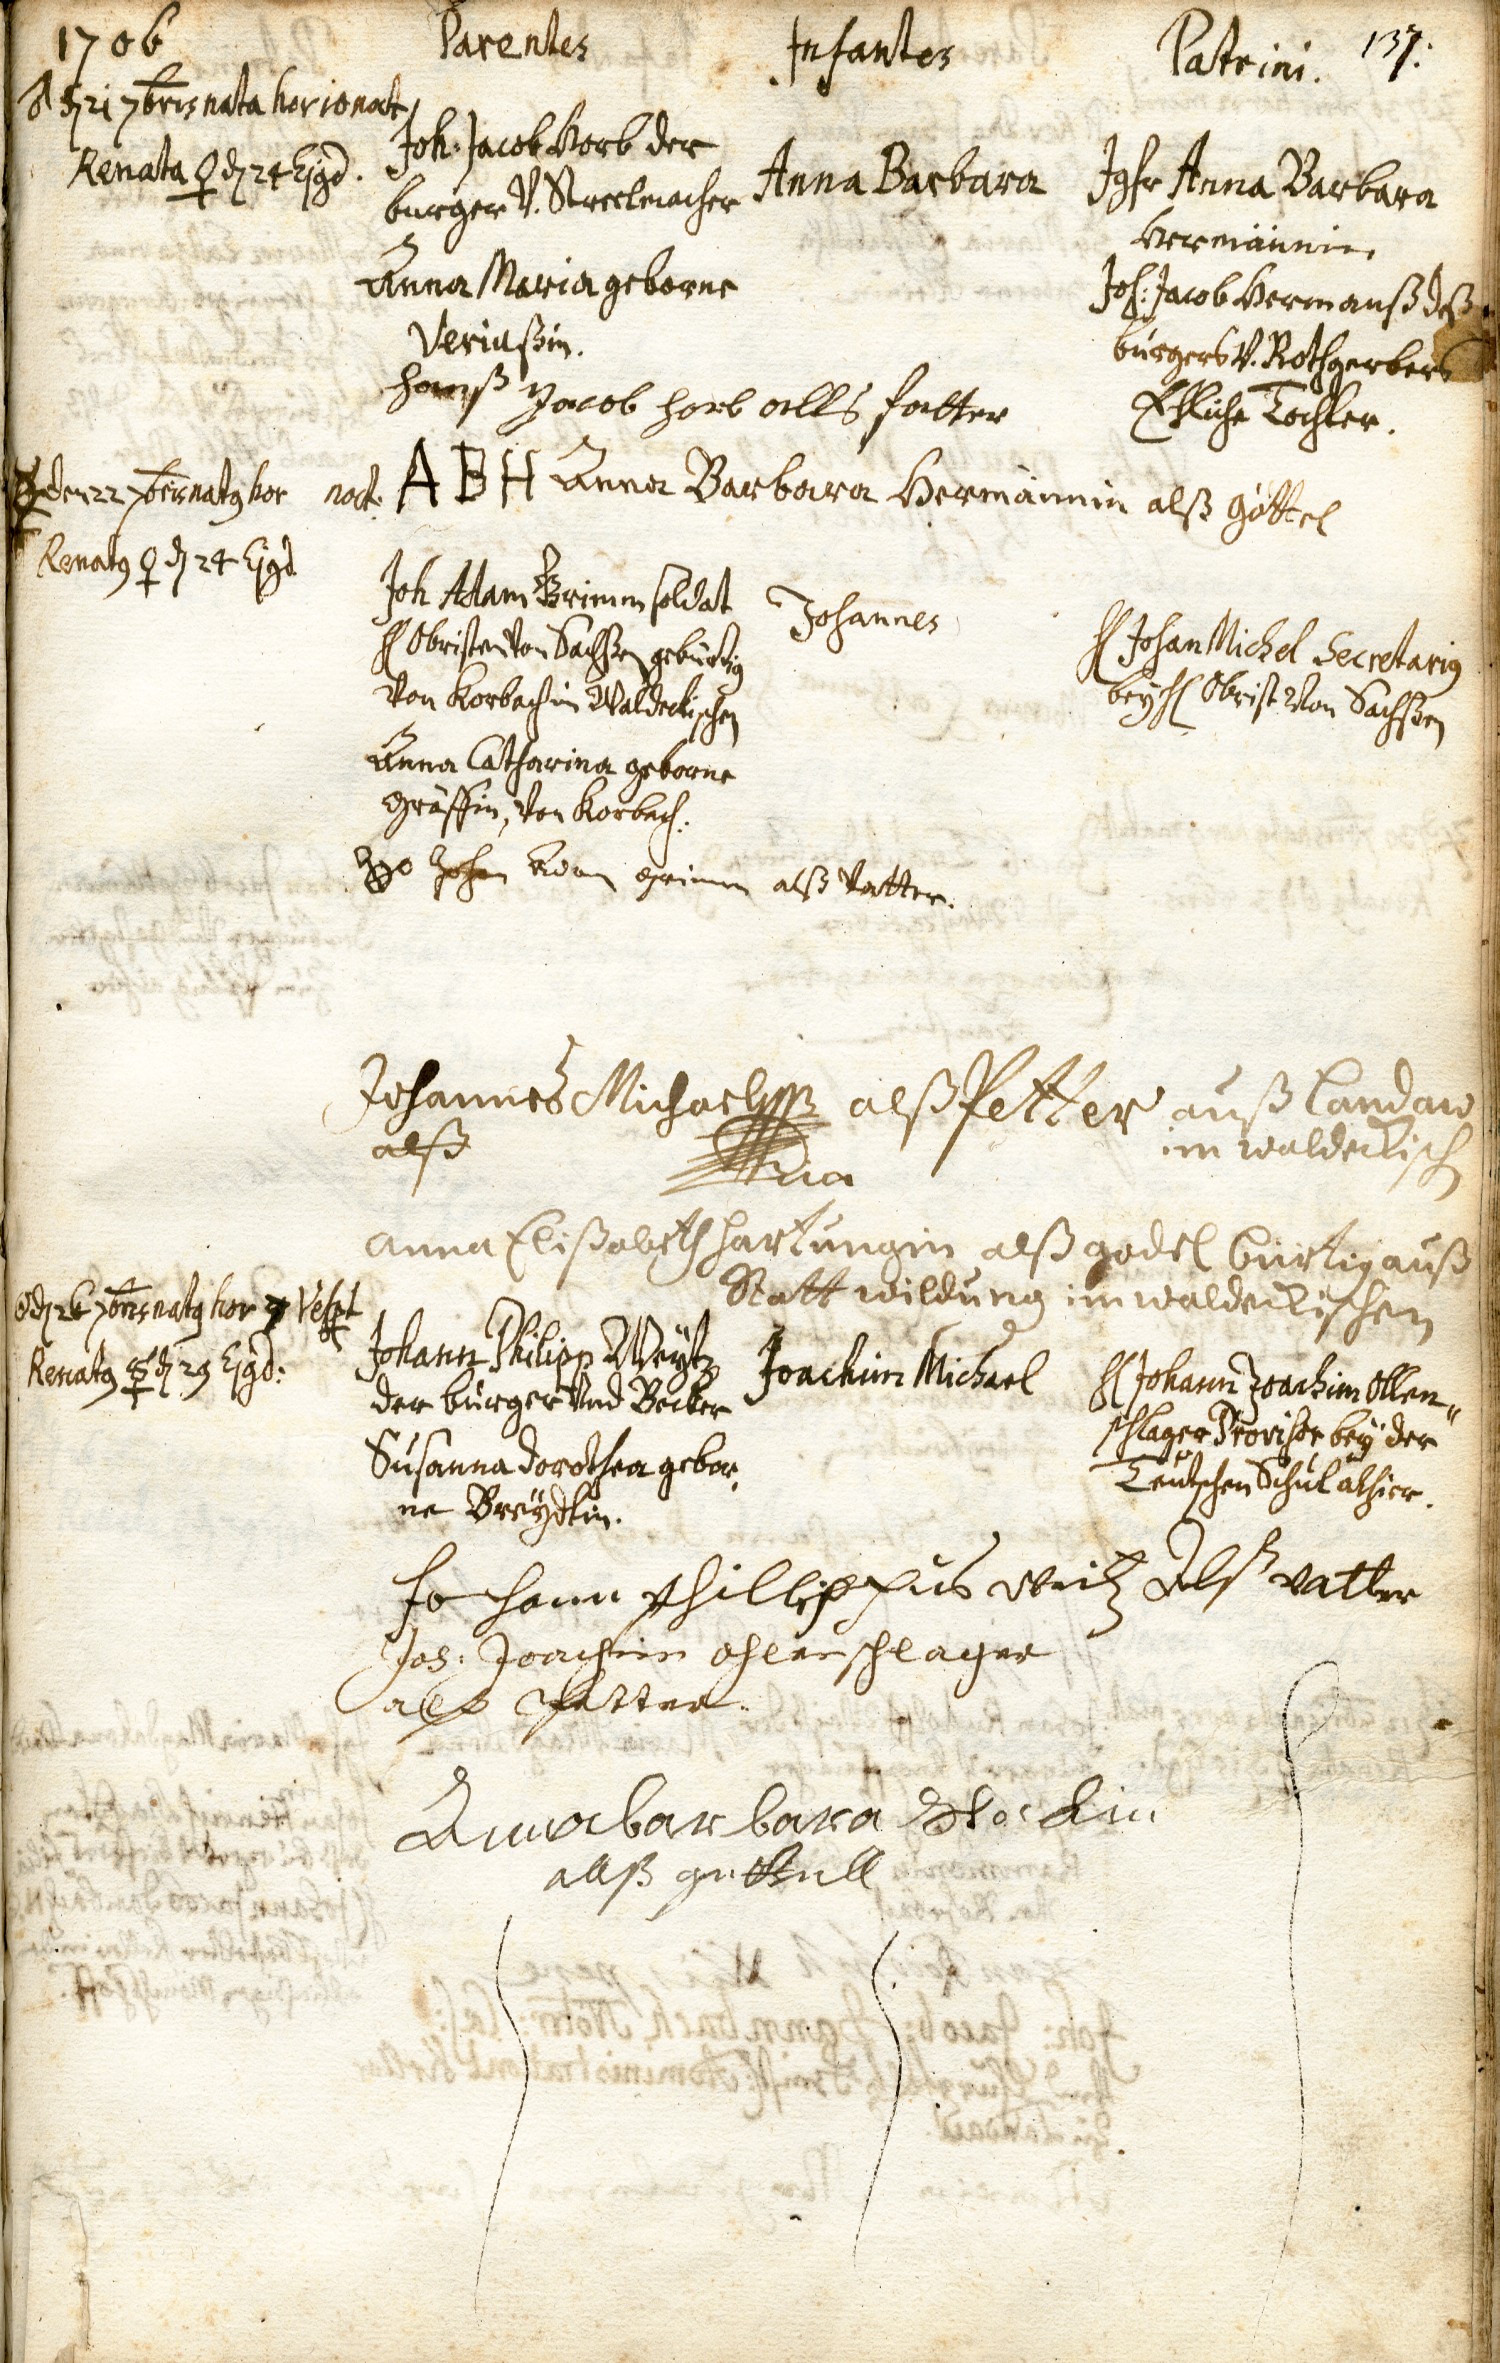 1706 Parentes Infantes Patrini. 137.
d 21 7bris nata hor 10 noct
Renata ♀ d 24 Ejqd.
Joh: Jacob Korb der
burger V.
Anna Maria geborne
Veriaßin.
Anna Barbara
Jgfr Anna Barbara
Hermännin,
Joh: Jacob Hermanß deß
burgers V. Rothgerbers
Ehliche Tochter.
hanß Jacob horb allß fatter
A B H Anna Barbara Hermännin alß göttel
den 22 7bris natq hor noct.
Renatq ♀ d 24 Ejqd
Joh Adam Grimm soldat
H Obristen Von Sachßen gebürtig
Von Korbach in Waldeckischen
Anna Catharina geborne
Gräffin, Von Korbach.
Johannes
H Johan Michel Secretariq
bey H Obrist Von Sachßen
Johan Adam Grimm alß Vatter.
Johannes Michaelß alß Petter auß Landau
alß im waldeckisch
anna Elißabeth hartungin alß godel bürtig auß
Statt wildung im waldeckischen
d 26 7bris natq hor 7 Vesp
Renatq d 29 Ejqd:
Johann Philipp Weytz
der burger Und Becker
Susanna dorothea gebor,
ne Breydtin.
Joachim Michael
H Johann Joachim Ollen-
schlager Provisor bey der
Teütschen Schul alhier.
Jo hann Phillippus weitz Alß vatter
Joh: Joachim ohlenschlager
alß Petter.
Anna barbara
allß gettell